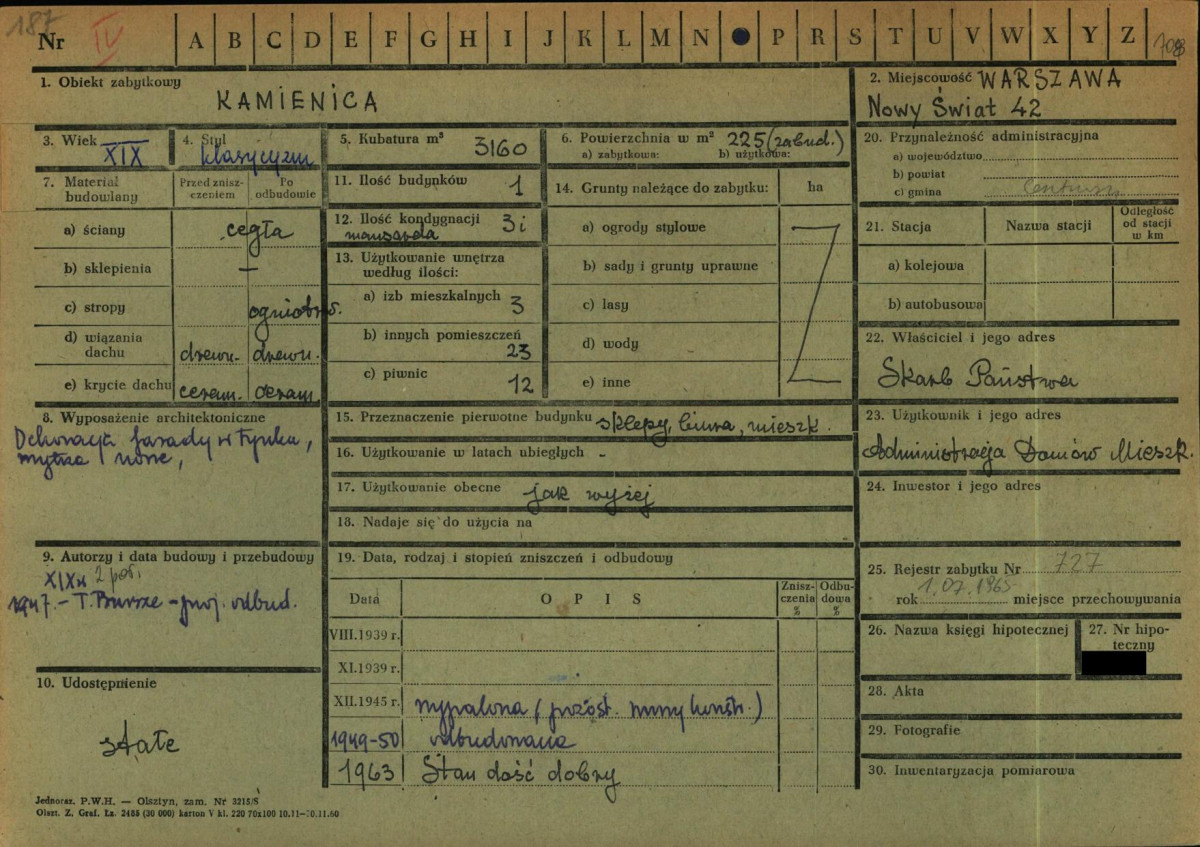 187
Nr IV A B C D E F G H I J K L M N P R S T U V W X Y Z
1. Obiekt zabytkowy
KAMIENICA
2. Miejscowość WARSZAWA
Nowy Świat 42
3. Wiek XIX
4. Styl klasycyzm
5. Kubatura m³ 3160
6. Powierzchnia w m² 225 (zabud.)
a) zabytkowa: b) użytkowa:
7. Materiał budowlany
Przed zniszczeniem
Po odbudowie
a) ściany cegła
b) sklepienia –
c) stropy ogniotrw.
d) wiązania dachu drewn. drewn.
e) krycie dachu ceram. ceram.
8. Wyposażenie architektoniczne
Dekoracja fasady w tynku,
9. Autorzy i data budowy i przebudowy
XIXw 2 poł.
1947. – T. Bursze – proj. odbud.
10. Udostępnienie
stałe
11. Ilość budynków 1
12. Ilość kondygnacji 3 i
mansarda
13. Użytkowanie wnętrza według ilości:
a) izb mieszkalnych 3
b) innych pomieszczeń 23
c) piwnic 12
14. Grunty należące do zabytku: ha
a) ogrody stylowe
b) sady i grunty uprawne
c) lasy
d) wody
e) inne
15. Przeznaczenie pierwotne budynku sklepy, biura, mieszk.
16. Użytkowanie w latach ubiegłych -
17. Użytkowanie obecne jak wyżej
18. Nadaje się do użycia na
19. Data, rodzaj i stopień zniszczeń i odbudowy
Data OPIS Zniszczenia % Odbudowa %
VIII.1939 r.
XI.1939 r.
XII.1945 r. wypalona (pozost. mury konstr.)
1949-50 odbudowana
1963 Stan dość dobry
20. Przynależność administracyjna
a) województwo
b) powiat
c) gmina Centrum
21. Stacja Nazwa stacji Odległość od stacji w km
a) kolejowa
b) autobusowa
22. Właściciel i jego adres
Skarb Państwa
23. Użytkownik i jego adres
Administracja Domów Mieszk.
24. Inwestor i jego adres
25. Rejestr zabytku Nr 727
rok 1.07.1965 miejsce przechowywania
26. Nazwa księgi hipotecznej
27. Nr hipoteczny
28. Akta
29. Fotografie
30. Inwentaryzacja pomiarowa
Jednoraz. P.W.H. — Olsztyn, zam. Nr 3215/S
Olszt. Z. Graf. Lz. 2485 (30 000) karton V kl. 220 70x100 10.11—10.11.60